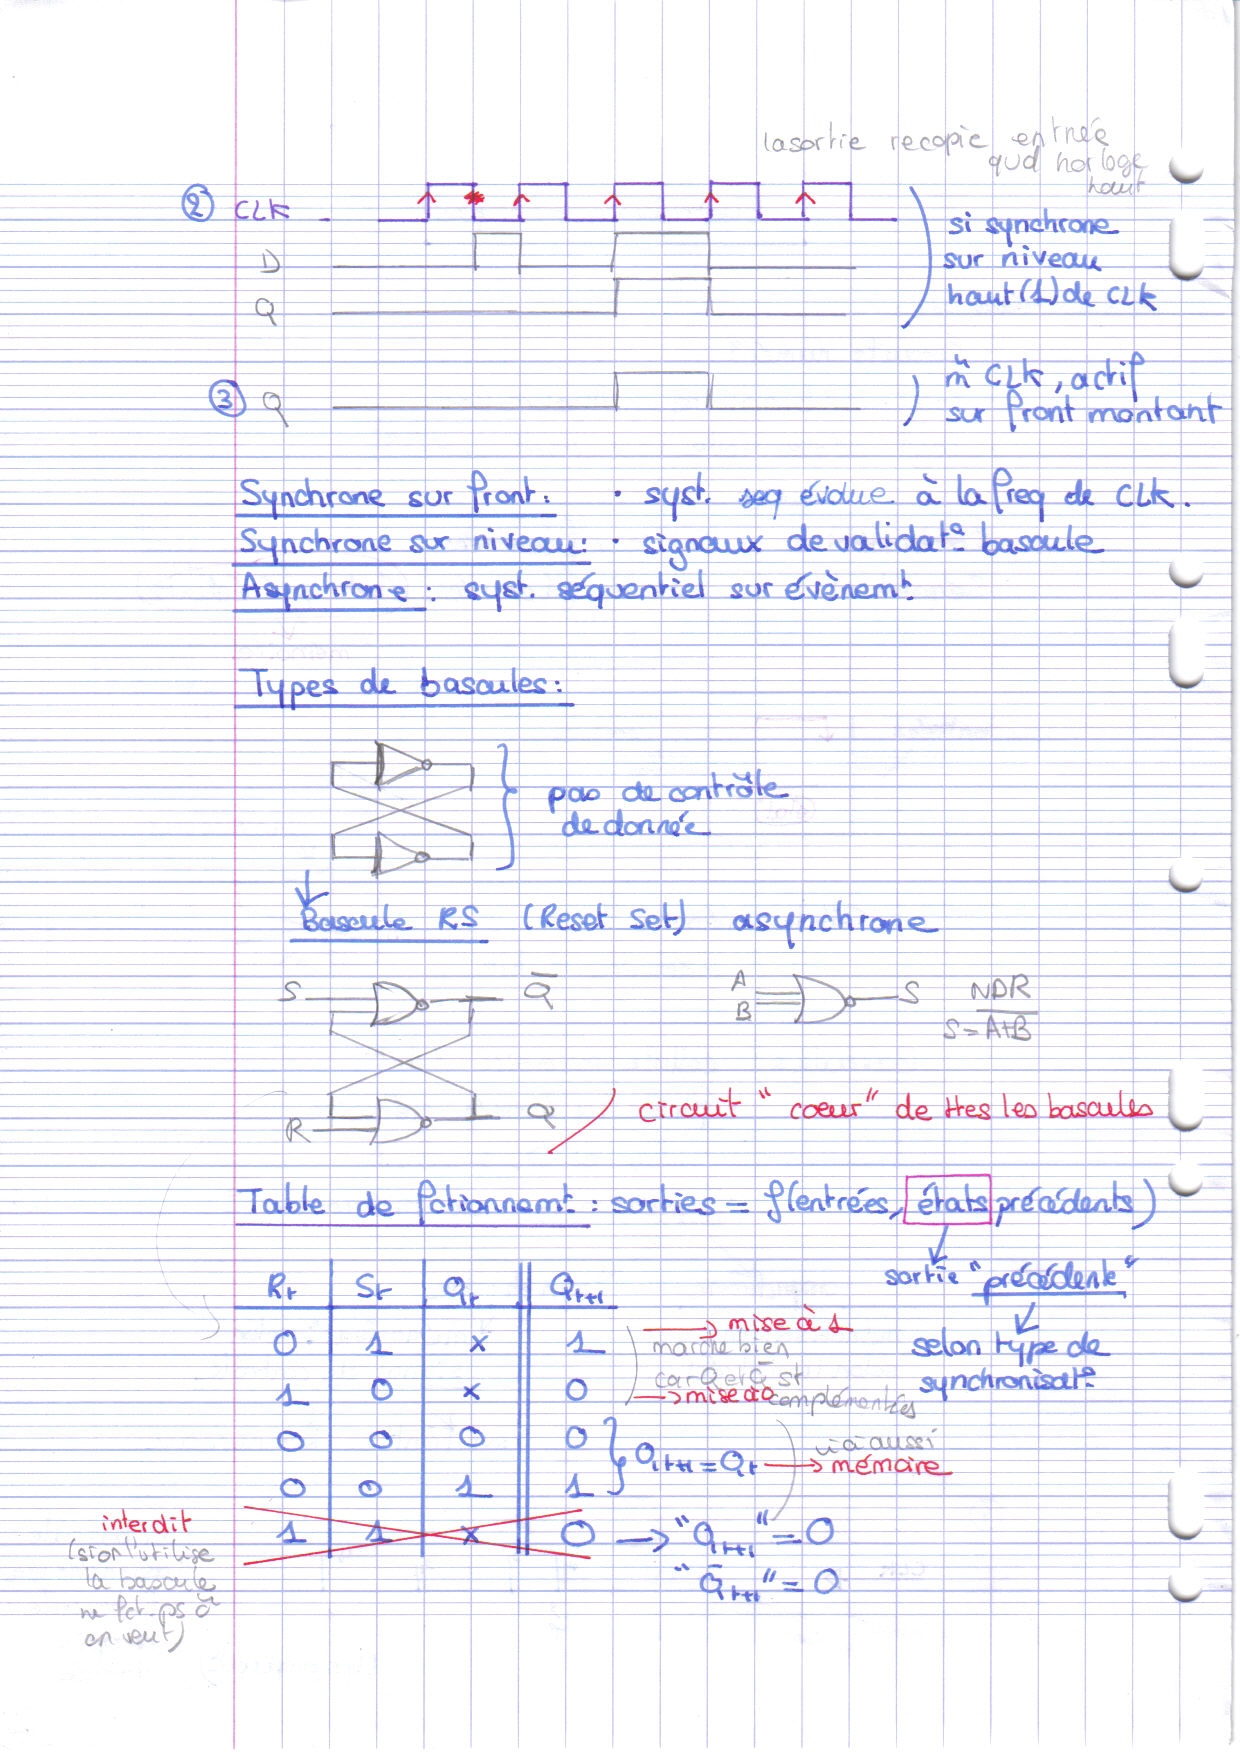 la sortie recopie entrée
qud horloge
haut
② CLK
D
Q
si synchrone
sur niveau
haut (1) de CLK
③ Q
m̃ CLK, actif
sur front montant
Synchrone sur front : • syst. seq évolue à la freq de CLK.
Synchrone sur niveau : • signaux de validat° bascule
Asynchrone : syst. séquentiel sur évènemt.
Types de bascules :
pas de contrôle
de donnée
Bascule RS (Reset Set) asynchrone
S Q̅
A
B
S
NOR
S = A+B
R Q
circuit "coeur" de ttes les bascules
Table de fctionnemt. : sorties = f(entrées, états précédents)
sortie "précédente"
selon type de
synchronisat°
Rt St Qt Qt+1
0 1 x 1 → mise à 1
marche bien
car Q et Q̅ st
complémentées
1 0 x 0 → mise à 0
0 0 0 0
Qt+1 = Qt → mémoire
aussi
0 0 1 1
interdit
(si on l'utilise
la bascule
ne fct. ps
on veut)
1 1 x 0 → "Qt+1" = 0
"Q̅t+1" = 0